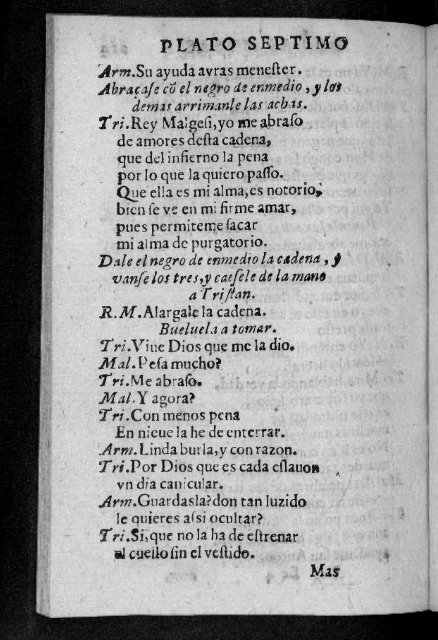 PLATO SEPTIMO
Arm. Su ayuda avras menester.
Abraçase cõ el negro de enmedio, y los
demas arrimanle las achas.
Tri. Rey Malgesi, yo me abraso
de amores desta cadena,
que del infierno la pena
por lo que la quiero passo.
Que ella es mi alma, es notorio,
bien se ve en mi firme amar,
pues permiteme sacar
mi alma de purgatorio.
Dale el negro de enmedio la cadena, y
vanse los tres, y caesele de la mano
a Tristan.
R. M. Alargale la cadena.
Bueluela a tomar.
Tri. Viue Dios que me la dio.
Mal. Pesa mucho?
Tri. Me abraso.
Mal. Y agora?
Tri. Con menos pena
En nieue la he de enterrar.
Arm. Linda burla, y con razon.
Tri. Por Dios que es cada eslauon
vn dia canicular.
Arm. Guardasla? don tan luzido
le quieres assi ocultar?
Tri. Si, que no la ha de estrenar
al cuello sin el vestido.
Mas